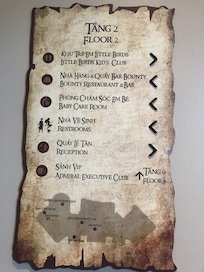 TẦNG 2
FLOOR 2
KHU TRẺ EM LITTLE BIRDS
LITTLE BIRDS KIDS CLUB
NHÀ HÀNG & QUẦY BAR BOUNTY
BOUNTY RESTAURANT & BAR
PHÒNG CHĂM SÓC EM BÉ
BABY CARE ROOM
NHÀ VỆ SINH
RESTROOMS
QUẦY LỄ TÂN
RECEPTION
SẢNH VIP
ADMIRAL EXECUTIVE CLUB
TẦNG
FLOOR